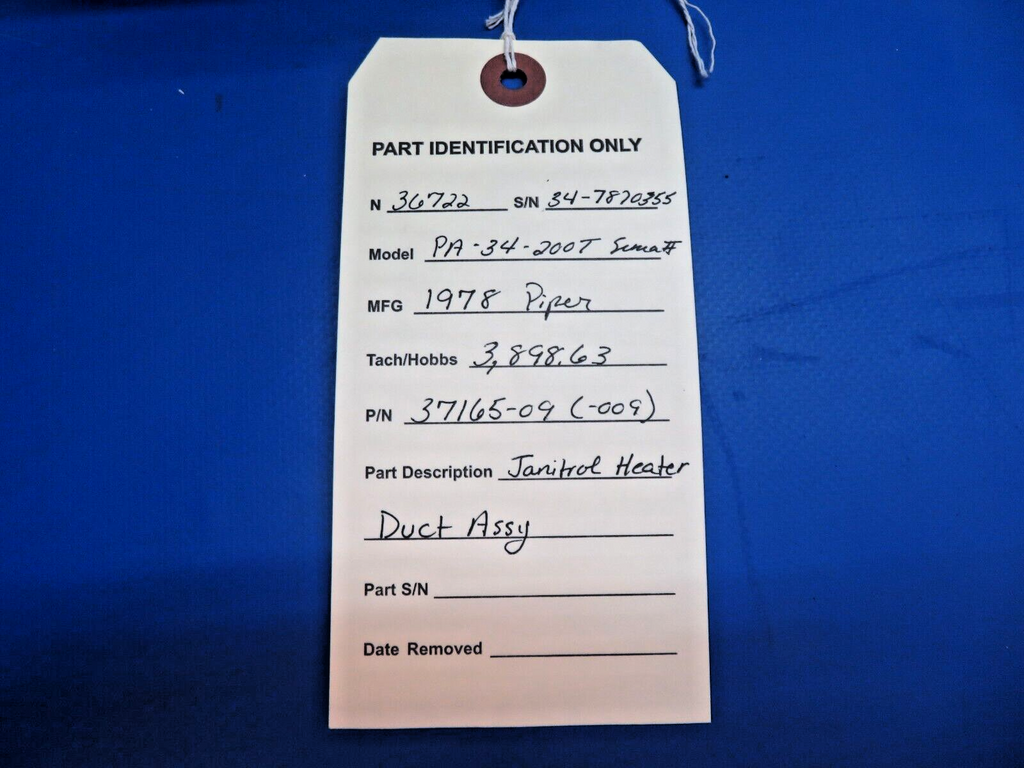 PART IDENTIFICATION ONLY
N 36722 S/N 34-7870355
Model PA-34-200T
MFG 1978 Piper
Tach/Hobbs 3,898.63
P/N 37165-09 (-009)
Part Description Janitrol Heater
Duct Assy
Part S/N
Date Removed